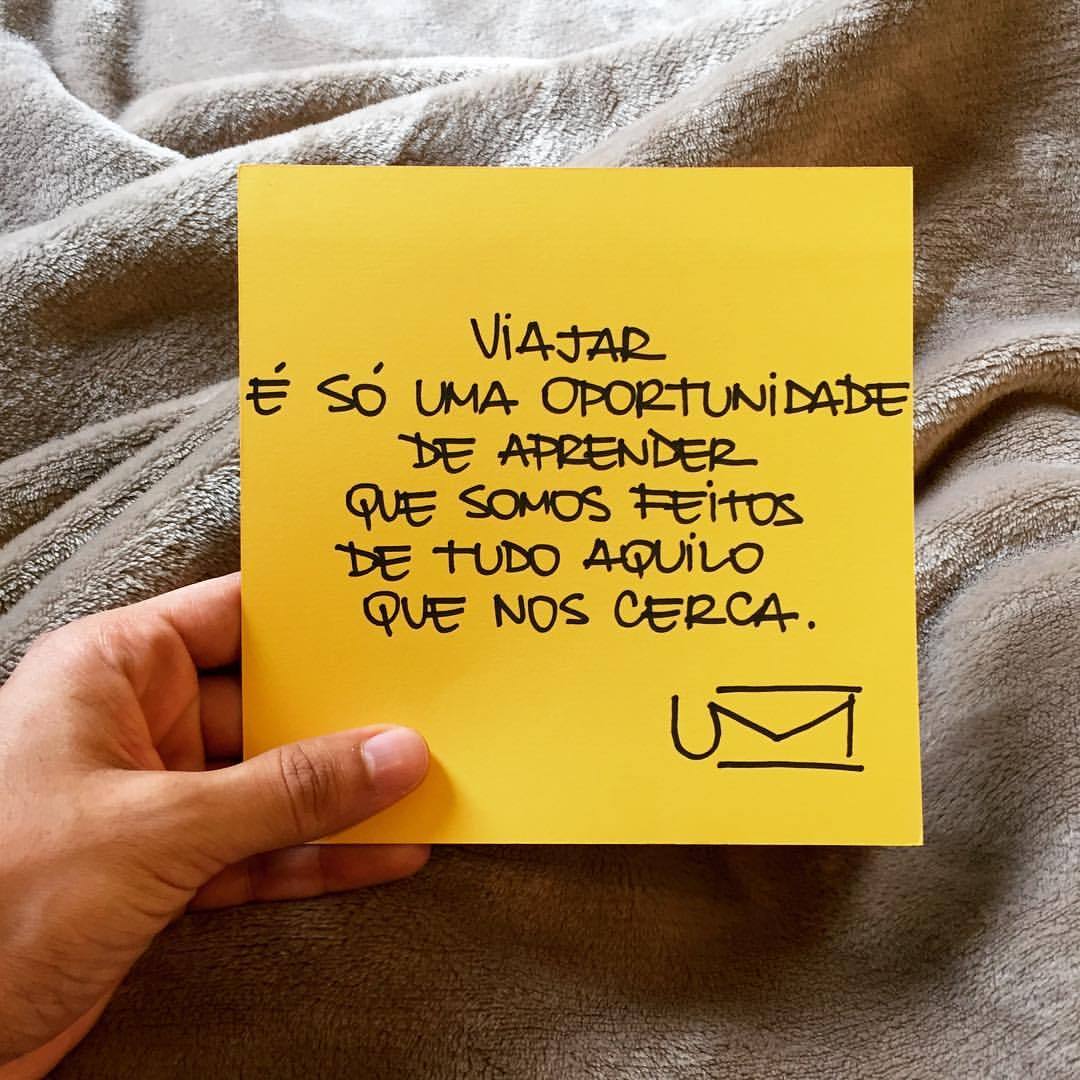 VIAJAR
É SÓ UMA OPORTUNIDADE
DE APRENDER
QUE SOMOS FEITOS
DE TUDO AQUILO
QUE NOS CERCA.
UM